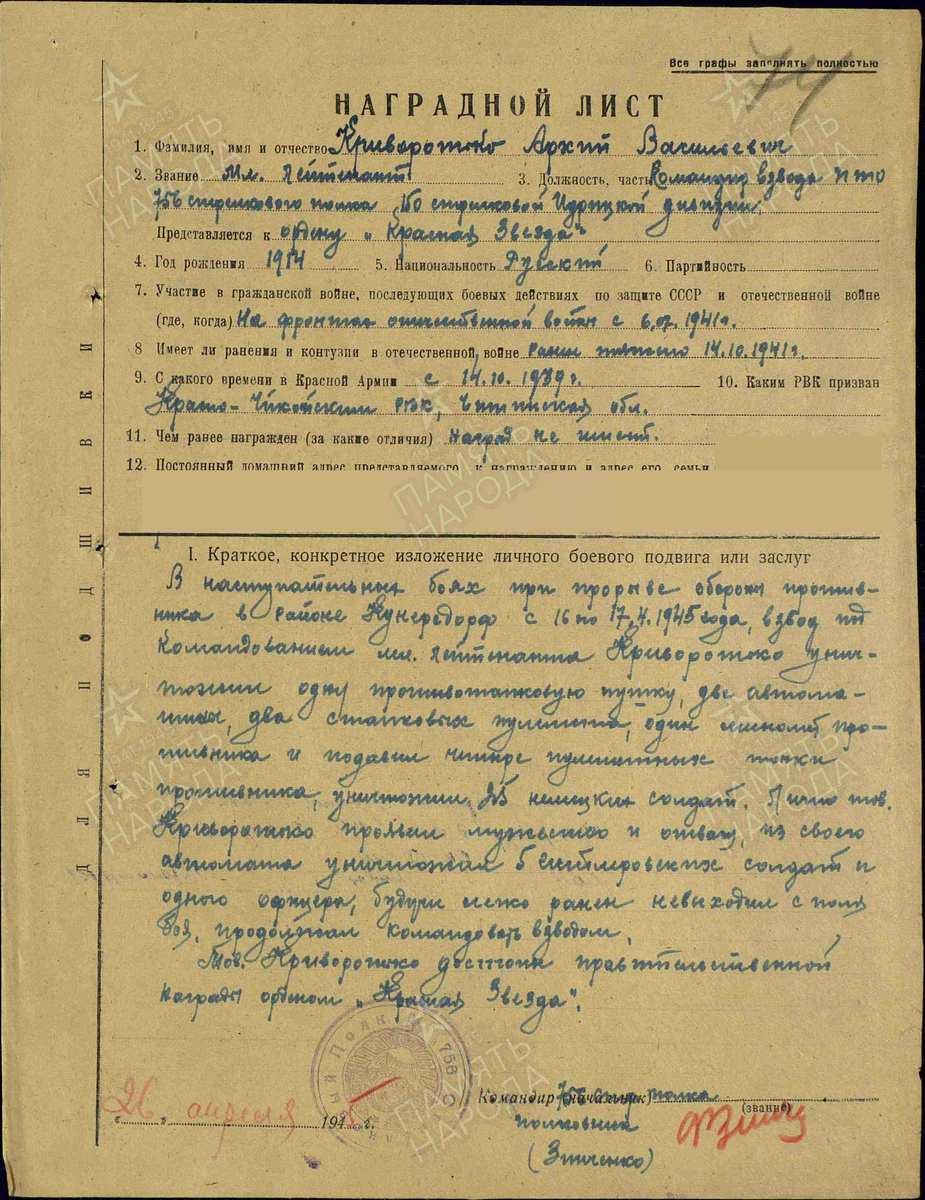 Все графы заполнять полностью
74
НАГРАДНОЙ ЛИСТ
1. Фамилия, имя и отчество Криворотько Архип Васильевич
2. Звание Мл. Лейтенант 3. Должность, часть Командир взвода ПТО
756 стрелкового полка 150 стрелковой Идрицкой дивизии.
Представляется к ордену „Красная Звезда"
4. Год рождения 1914 5. Национальность Русский 6. Партийность
7. Участие в гражданской войне, последующих боевых действиях по защите СССР и отечественной войне
(где, когда) На фронтах отечественной войны с 6.07.1941г.
8 Имеет ли ранения и контузии в отечественной войне ранен тяжело 14.10.1941г.
9. С какого времени в Красной Армии с 14.10.1939г. 10. Каким РВК призван
Красно-Чикойским РВК, Читинская обл.
11. Чем ранее награжден (за какие отличия) Наград не имеет.
12. Постоянный домашний адрес представляемого к награждению и адрес его семьи
ДЛЯ ПОДШИВКИ
I. Краткое, конкретное изложение личного боевого подвига или заслуг
В наступательных боях при прорыве обороны против-
ника в районе Кунерсдорф с 16 по 17.4.1945 года, взвод под
командованием мл. лейтенанта Криворотько унич-
тожил одну противотанковую пушку, две автома-
шины, два станковых пулемета, один миномёт про-
тивника и подавил четыре пулеметных точки
противника, уничтожил 25 немецких солдат. Лично тов.
Криворотько проявил мужество и отвагу, из своего
автомата уничтожил 5 гитлеровских солдат и
одного офицера, будучи легко ранен невыходил с поля
боя, продолжал командовать взводом.
Тов. Криворотько достоин правительственной
награды орденом „Красная Звезда".
756
Командир (начальник) 756 стр. полка
(звание)
полковник
(Зинченко)
„26" апреля 1945 г.
ПАМЯТЬ
НАРОДА